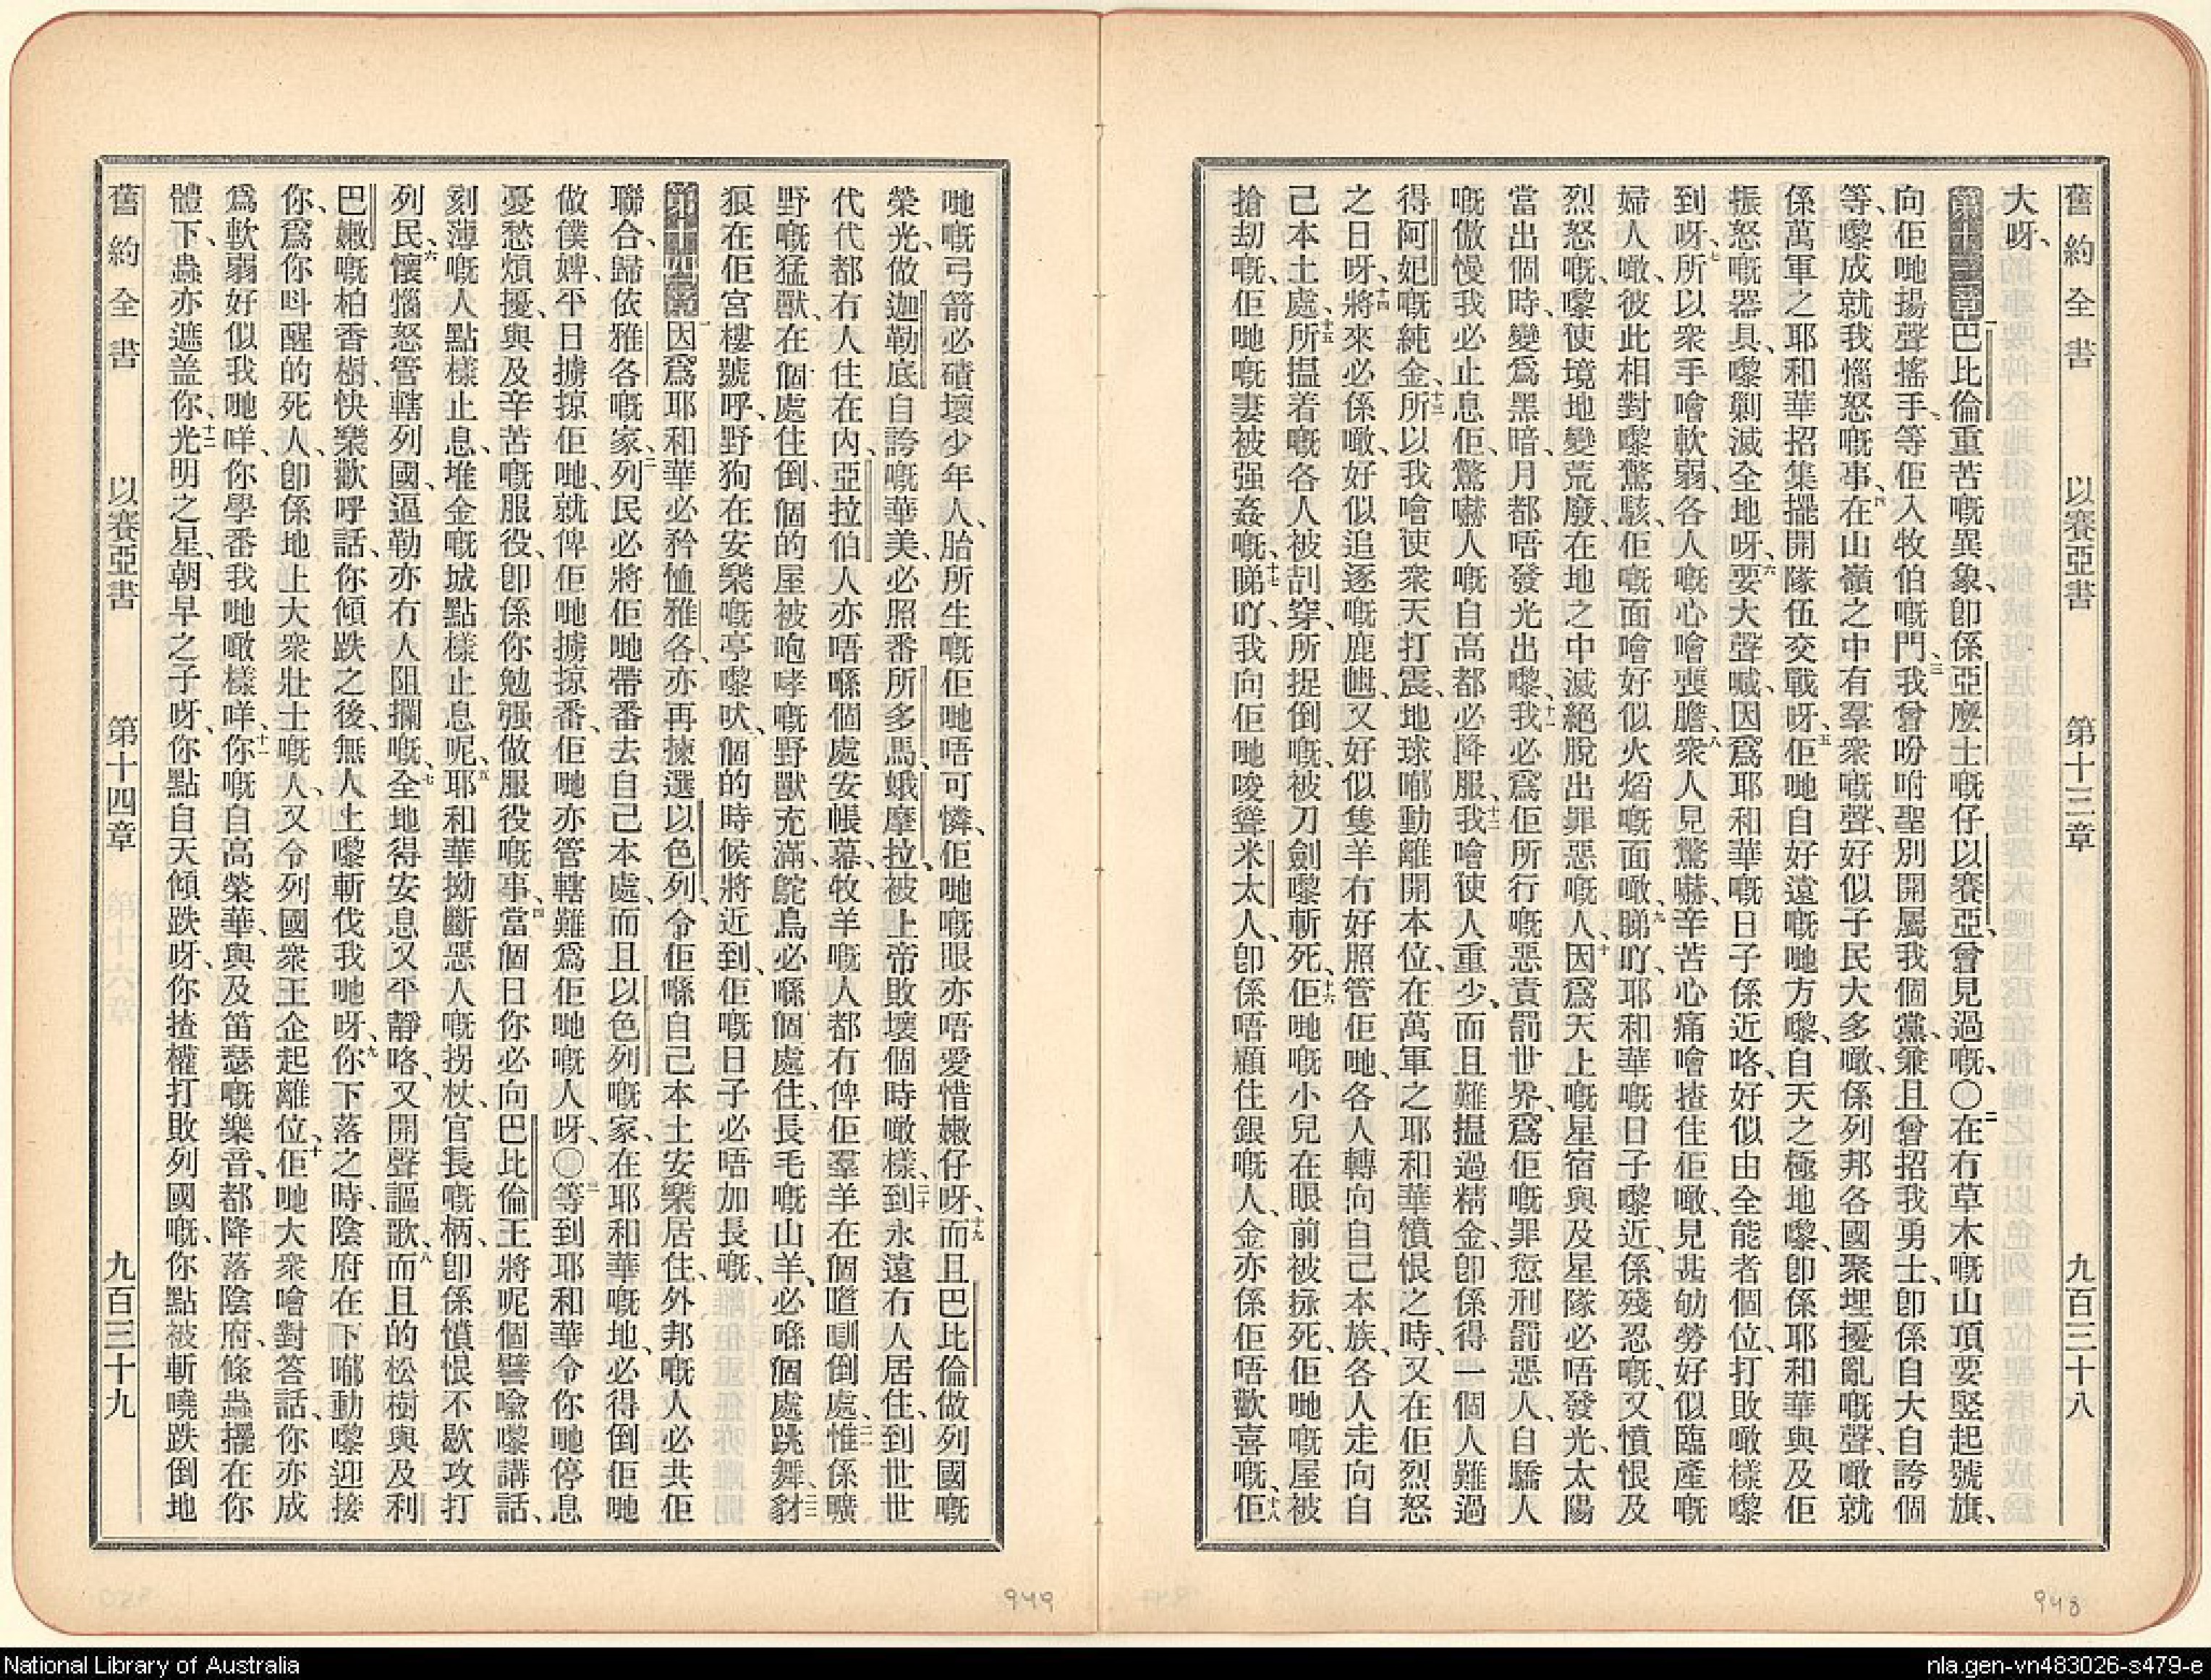 舊約全書 以賽亞書 第十三章 九百三十八
大呀、
第十三章一巴比倫重苦嘅異象、卽係亞麼士嘅仔以賽亞、曾見過嘅、〇二在冇草木嘅山頂要竪起號旗、
向佢哋揚聲搖手、等佢入牧伯嘅門、三我曾吩咐聖別開屬我個黨、兼且曾招我勇士、卽係自大自誇個
等、嚟成就我惱怒嘅事、四在山嶺之中有羣衆嘅聲、好似子民大多噉、係列邦各國聚埋擾亂嘅聲、噉就
係萬軍之耶和華招集擺開隊伍交戰呀、五佢哋自好遠嘅哋方嚟、自天之極地嚟、卽係耶和華與及佢
振怒嘅器具、嚟剿滅全地呀、六要大聲喊、因爲耶和華嘅日子係近咯、好似由全能者個位、打敗噉樣嚟
到呀、七所以衆手噲軟弱、各人嘅心噲喪膽、八衆人見驚嚇、辛苦心痛噲揸住佢噉、見甚劬勞好似臨產嘅
婦人噉、彼此相對嚟驚駭、佢嘅面噲好似火熖嘅面噉、九睇吖、耶和華嘅日子嚟近、係殘忍嘅、又憤恨及
烈怒嘅、嚟使境地變荒廢、在地之中滅絕脫出罪惡嘅人、十因爲天上嘅星宿與及星隊必唔發光、太陽
當出個時、變爲黑暗、月都唔發光出嚟、十一我必爲佢所行嘅惡責罰世界、爲佢嘅罪愆刑罰惡人、自驕人
嘅傲慢我必止息佢、驚嚇人嘅自高都必降服、十二我噲使人重少、而且難揾過精金、卽係得一個人難過
得阿妃嘅純金、十三所以我噲使衆天打震、地球喐動離開本位、在萬軍之耶和華憤恨之時、又在佢烈怒
之日呀、十四將來必係噉、好似追逐嘅鹿乸、又好似隻羊冇好照管佢哋、各人轉向自己本族、各人走向自
己本土處、十五所揾着嘅各人被刮穿、所捉倒嘅、被刀劍嚟斬死、十六佢哋嘅小兒在眼前被拯死、佢哋嘅屋被
搶劫嘅、佢哋嘅妻被强姦嘅、十七睇吖、我向佢哋唆聳米太人、卽係唔顧住銀嘅人、金亦係佢唔歡喜嘅、十八佢
哋嘅弓箭必磧壞少年人、胎所生嘅佢哋唔可憐、佢哋嘅眼亦唔愛惜嫩仔呀、十九而且巴比倫做列國嘅
榮光、做迦勒底自誇嘅華美、必照番所多馬、蛾摩拉、被上帝敗壞個時噉樣、二十到永遠冇人居住、到世世
代代都冇人住在內、亞拉伯人亦唔喺個處安帳幕、牧羊嘅人都冇俾佢羣羊在個喧瞓倒處、二一惟係曠
野嘅猛獸、在個處住倒、個的屋被咆哮嘅野獸充滿、鴕鳥必喺個處住、長毛嘅山羊、必喺個處跳舞、二二豺
狼在佢宮樓號呼、野狗在安樂嘅亭嚟吠、個的時候將近到、佢嘅日子必唔加長嘅、
第十四章一因爲耶和華必矜恤雅各、亦再揀選以色列、令佢喺自己本土安樂居住、外邦嘅人必共佢
聯合、歸依雅各嘅家、二列民必將佢哋帶番去自己本處、而且以色列嘅家、在耶和華嘅地、必得倒佢哋
做僕婢、平日擄掠佢哋、就俾佢哋擄掠番、佢哋亦管轄難爲佢哋嘅人呀、〇三等到耶和華令你哋停息
憂愁煩擾、與及辛苦嘅服役、卽係你勉强做服役嘅事、四當個日你必向巴比倫王將呢個譬喻嚟講話、
刻薄嘅人點樣止息、堆金嘅城點樣止息呢、五耶和華拗斷惡人嘅拐杖、官長嘅柄、卽係憤恨不歇攻打
列民、六懷惱怒管轄列國、逼勒亦冇人阻攔嘅、七全地得安息又平靜咯、又開聲謳歌、八而且的松樹與及利
巴嫩嘅柏香樹、快樂歡呼話、你傾跌之後、無人上嚟斬伐我哋呀、九你下落之時、陰府在下喐動嚟迎接
你、爲你呌醒的死人、卽係地上大衆壯士嘅人、又令列國衆王企起離位、十佢哋大衆噲對答話、你亦成
爲軟弱好似我哋咩、你學番我哋噉樣咩、十一你嘅自高榮華、與及笛瑟嘅樂音、都降落陰府、條蟲擺在你
體下、蟲亦遮盖你、十二光明之星、朝早之子呀、你點自天傾跌呀、你揸權打敗列國嘅、你點被斬嘵跌倒地
舊約全書 以賽亞書 第十四章 九百三十九
949
948
National Library of Australia
nla.gen-vn483026-s479-e